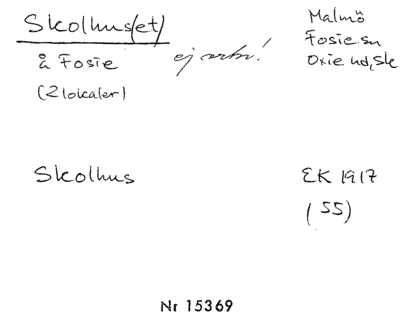 Skolhus(et)
å Fosie
(2 lokaler)
ej
Malmö
Fosie sn
Oxie hd, Sk
Skolhus
EK 1917
(55)
Nr 15369